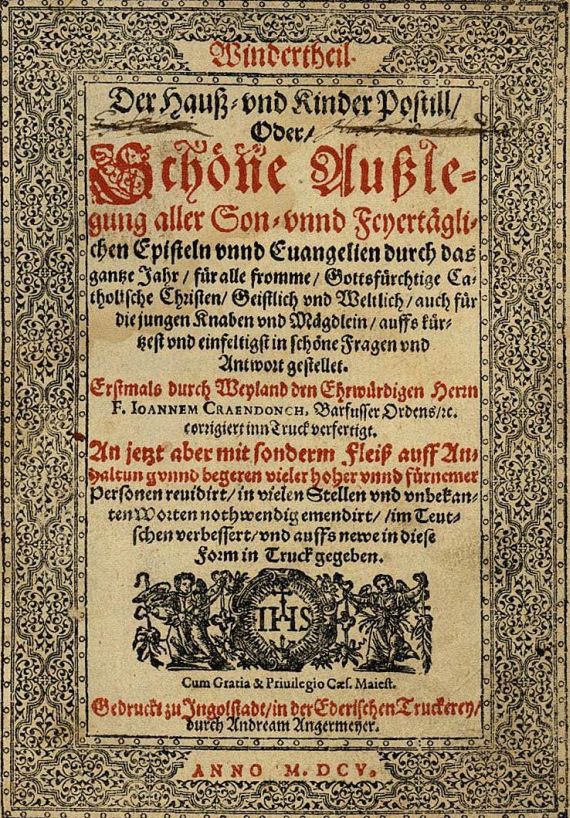 Windertheil.
Der Hauß- vnd Kinder Postill/
Oder/
Schöne Außle-
gung aller Son- vnnd Feyertägli-
chen Episteln vnnd Euangelien durch das
gantze Jahr / für alle fromme / Gottsfürchtige Ca-
tholische Christen / Geistlich vnd Weltlich / auch für
die jungen Knaben vnd Mägdlein / auffs kür-
tzest vnd einfeltigst in schöne Fragen vnd
Antwort gestellet.
Erstmals durch Weyland den Ehrwürdigen Herrn
F. IOANNEM CRAENDONCH, Barfusser Ordens/ ꝛc.
corrigiert inn Truck verfertigt.
An jetzt aber mit sonderm Fleiß auff An-
haltun g vnnd begeren vieler hoher vnnd fürnemer
Personen reuidirt / in vielen Stellen vnd vnbekan-
ten Worten nothwendig emendirt / /im Teut-
schen verbessert / vnd auffs newe in diese
Form in Truck gegeben.
IHS
Cum Gratia & Priuilegio Cæs. Maiest.
Gedruckt zu Ingolstadt / in der Ederischen Truckerey/
durch Andream Angermeyer.
ANNO M. DCV.